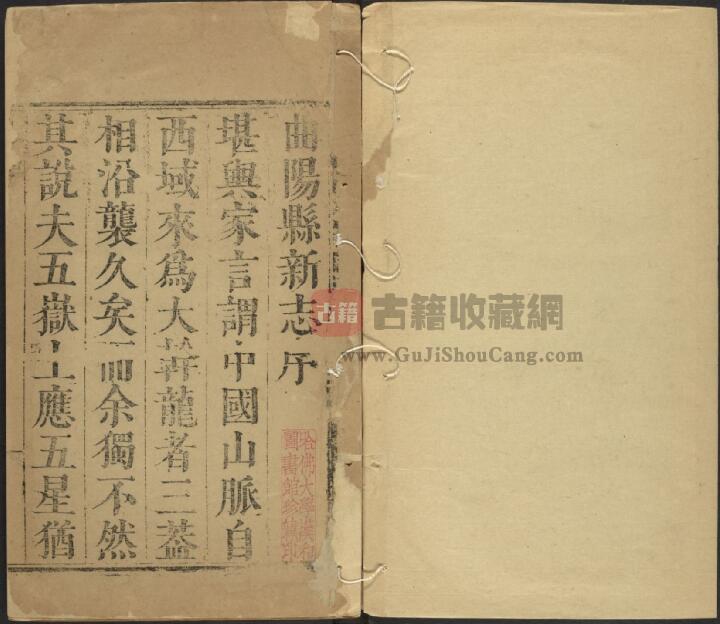 曲陽縣新志序
堪輿家言謂中國山脈自
西域來爲大幹龍者三蓋
相沿襲久矣而余獨不然
其說夫五嶽上應五星猶
哈佛大學漢和
圖書館珍藏印
古籍
古籍收藏網
www.GuJiShouCang.com